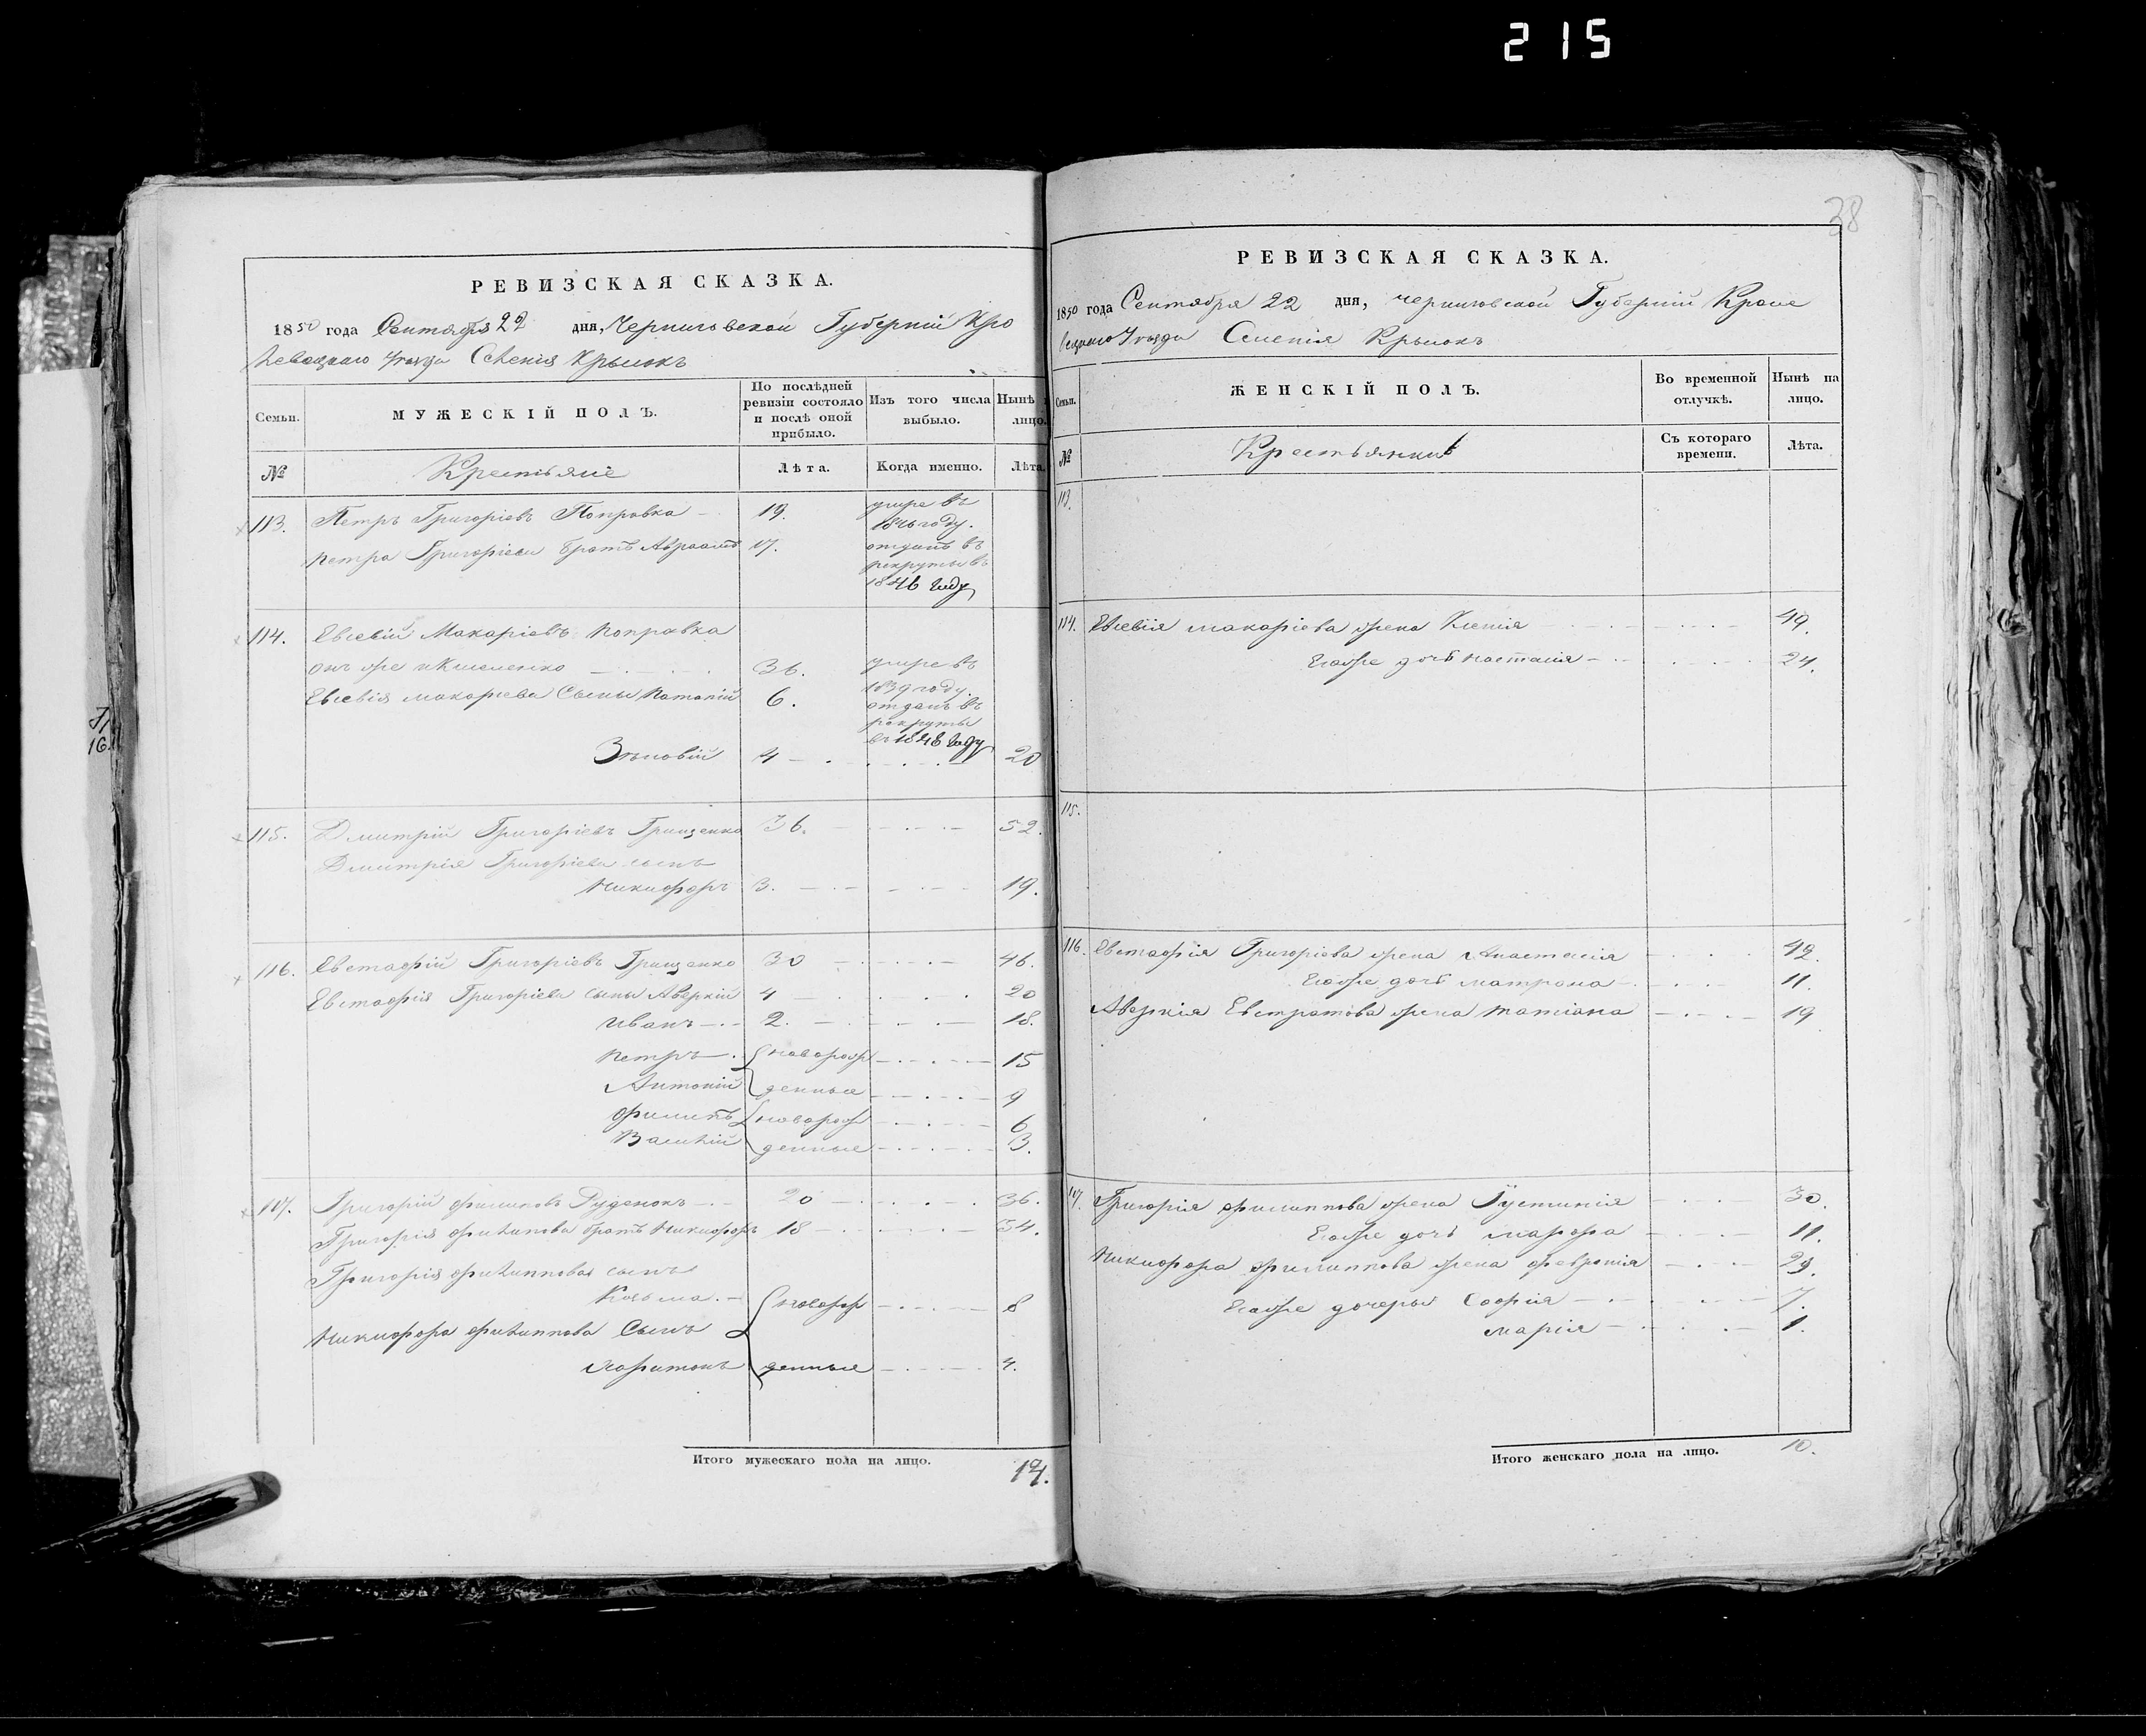 215
38
РЕВИЗСКАЯ СКАЗКА.
1850 года Сентября 22 дня, Черниговской Губерніи Кро
левецкаго Уезда Селенія Крымокъ
Семьи.
МУЖЕСКІЙ ПОЛЪ.
По послѣдней ревизіи состояло и послѣ оной прибыло.
Изъ того числа выбыло.
Нынѣ на лицо.
№
Крестьяне
Лѣта.
Когда именно.
Лѣта
113. Петръ Григоріевъ Поправка 19. умре въ
1846 году.
Петра Григоріева братъ Авраамъ 17. отданъ въ
рекруты въ
1846 году
114. Евсевій Макаріевъ Поправка
онъ же 36. умре въ
1839 году.
Евсевія Макаріева Сыны Потапій 6. отданъ въ
рекруты
въ 1848 году
Зѣновій 4 20
115. Дмитрій Григоріевъ Грищенко 36. 52.
Дмитрія Григоріева сынъ
Никифоръ 3. 19.
116. Евстафій Григоріевъ Грищенко 30 46.
Евстафія Григоріева сыны Аверкій 4 20
Иванъ 2. 18.
Петръ новорож 15
Антоній денные 9
Филипъ новорож 6
Василій денные 3.
117. Григорій Филиповъ Руденокъ 20 36.
Григорія Филипова братъ Никифоръ 18 34.
Григорія Филиппова сынъ
Козьма новорож 8
Никифора Филиппова Сынъ
Харитонъ денные 4.
Итого мужескаго пола на лицо.
РЕВИЗСКАЯ СКАЗКА.
1850 года Сентября 22 дня, Черниговской Губерніи Кроле
вецкаго Уезда Селенія Крымокъ
Семьи.
ЖЕНСКІЙ ПОЛЪ.
Во временной отлучкѣ.
Нынѣ на лицо.
№
Крестьянки
Съ котораго времени.
Лѣта.
113.
114. Евсевія Макаріева жена Ксенія 49.
Егоже дочь Настасія 24.
115.
116. Евстафія Григоріева жена Анастасія 42.
Егоже дочь Матрона 11.
Аверкія Евстратова жена Татіана 19
117. Григорія Филиппова жена Іустинія 30.
Егоже дочь Марфа 11.
Никифора Филиппова жена Февронія 29.
Егоже дочери Софія 7.
Марія 1.
Итого женскаго пола на лицо. 10.